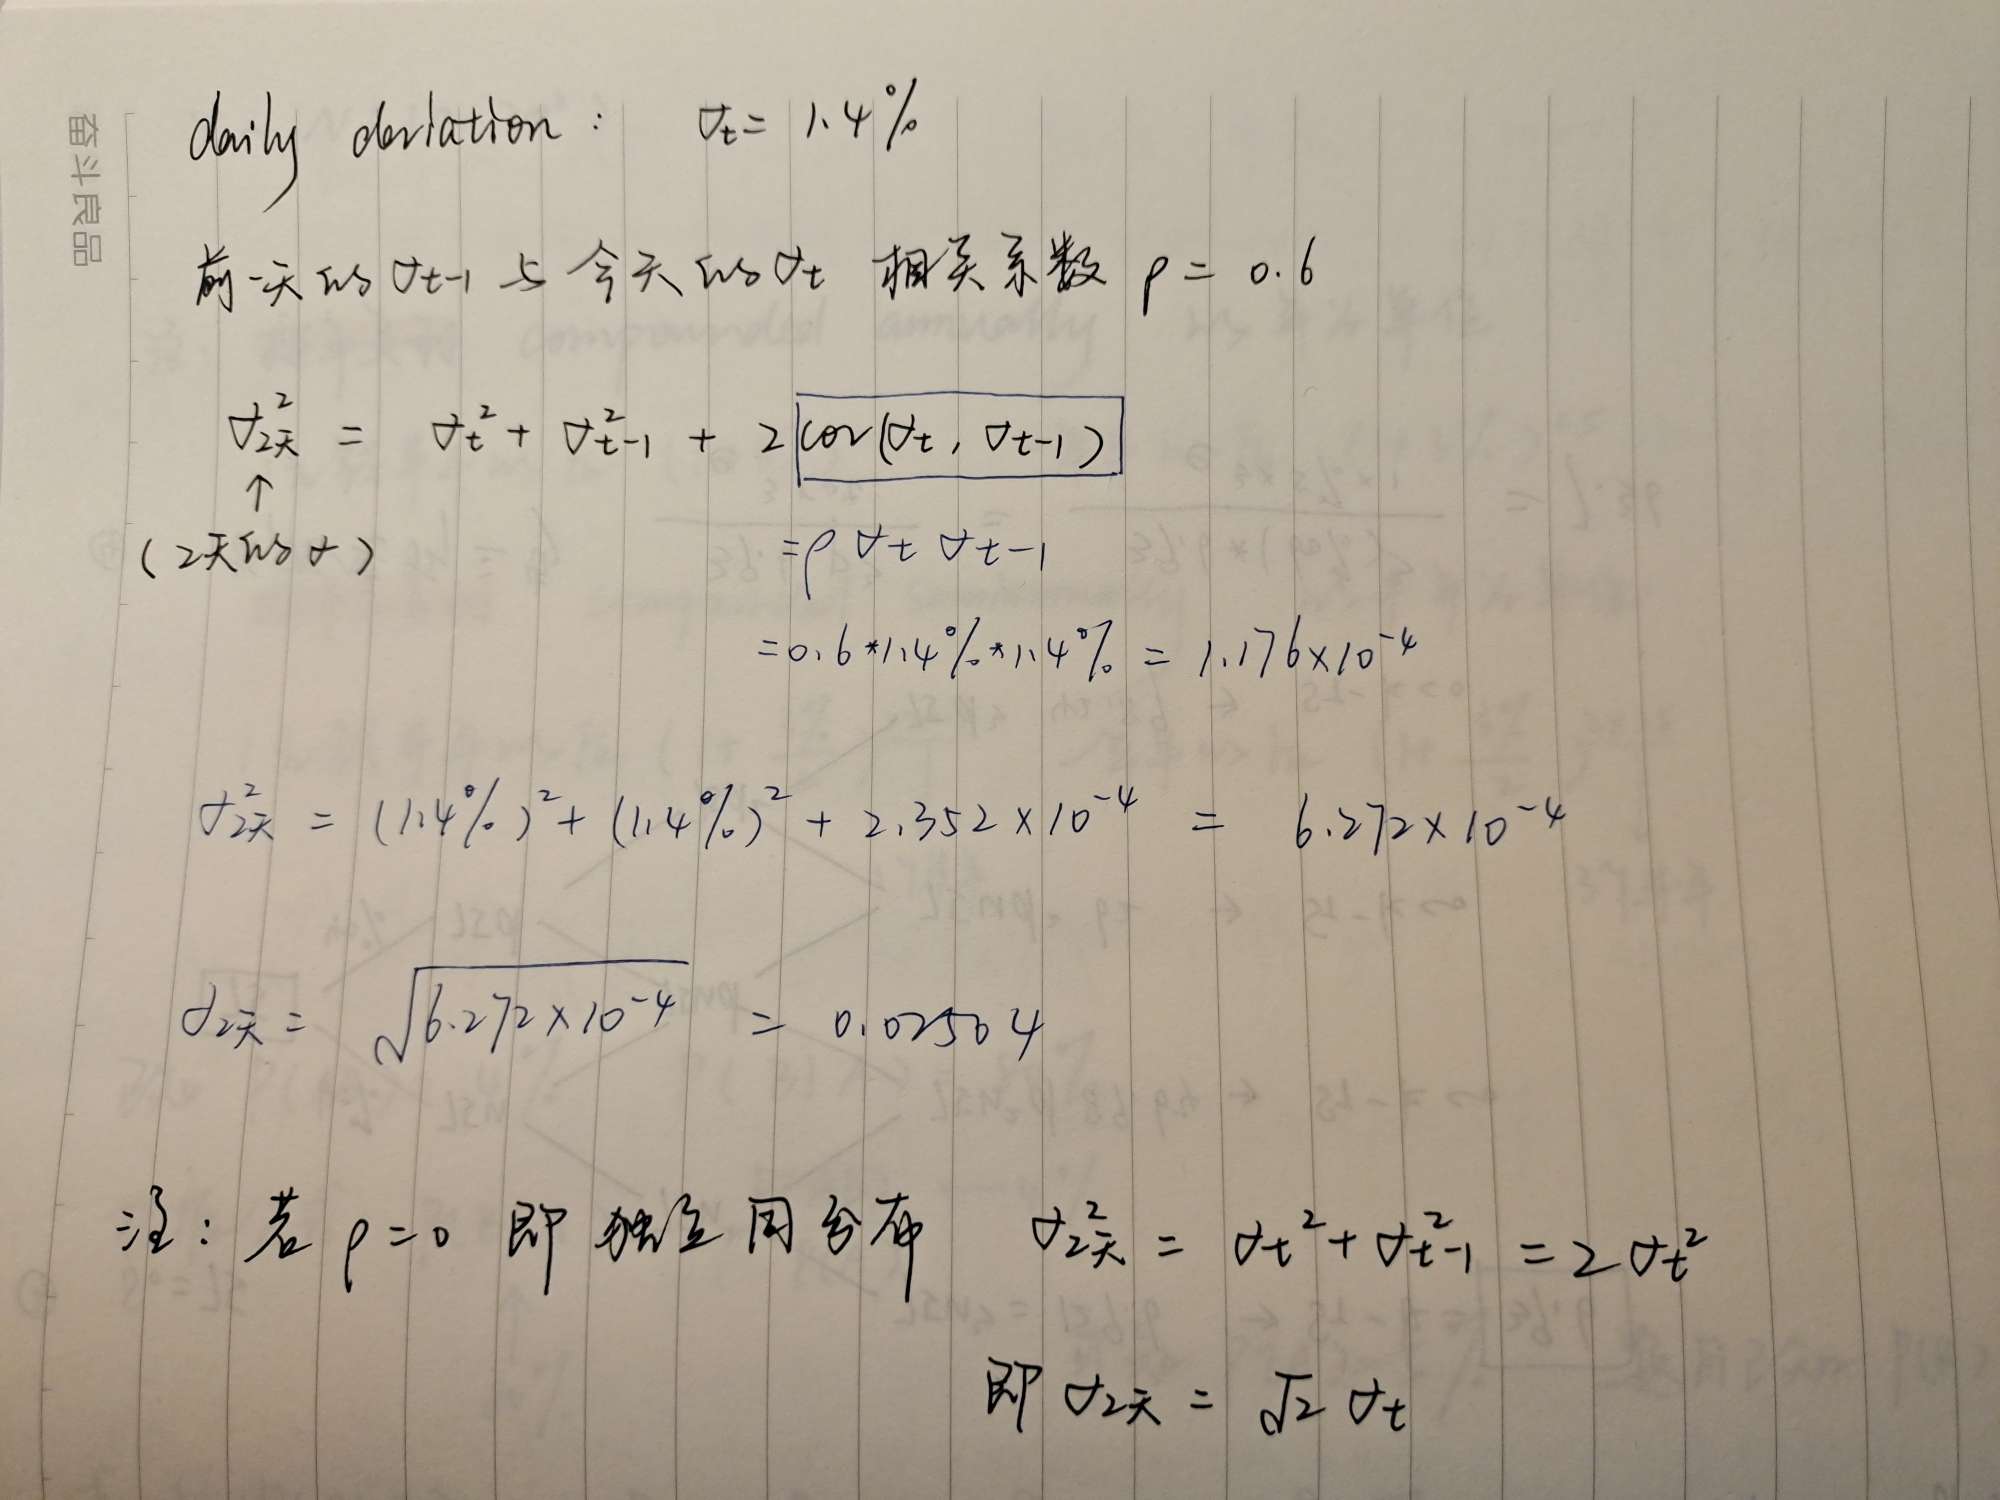 奋斗良品
daily deviation: σt = 1.4%
前一天的σt-1 与 今天的σt 相关系数 ρ = 0.6
σ²2天 = σt² + σ²t-1 + 2 cov(σt, σt-1)
↑
(2天的σ)
= ρ σt σt-1
= 0.6*1.4%*1.4% = 1.176×10⁻⁴
σ²2天 = (1.4%)² + (1.4%)² + 2.352×10⁻⁴ = 6.272×10⁻⁴
σ2天 = √6.272×10⁻⁴ = 0.02504
注: 若 ρ=0 即 独立同分布 σ²2天 = σt² + σ²t-1 = 2σt²
即 σ2天 = √2 σt